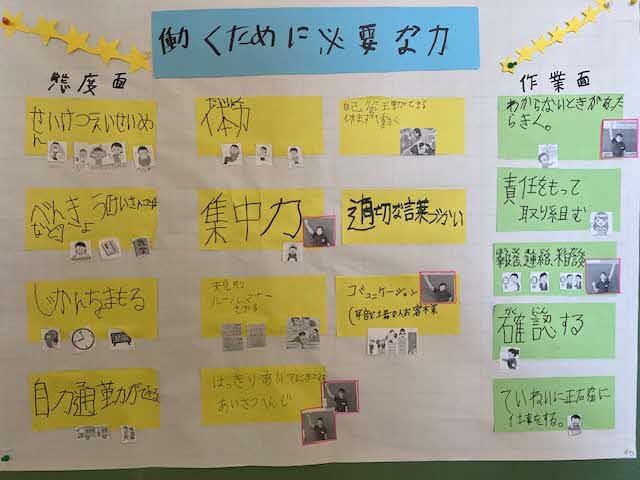 働くために必要な力
態度面
せいけつえいせいめん
べんき
じかんをまもる
自力通勤ができる
体力
集中力
はっきり
あいさつへんじ
休まず働く
適切な言葉づかい
コミュニケーション
作業面
わからないときがあったらきく。
責任をもって
取り組む
報告、連絡、相談
確認する
ていねいに正確に
仕事をする。